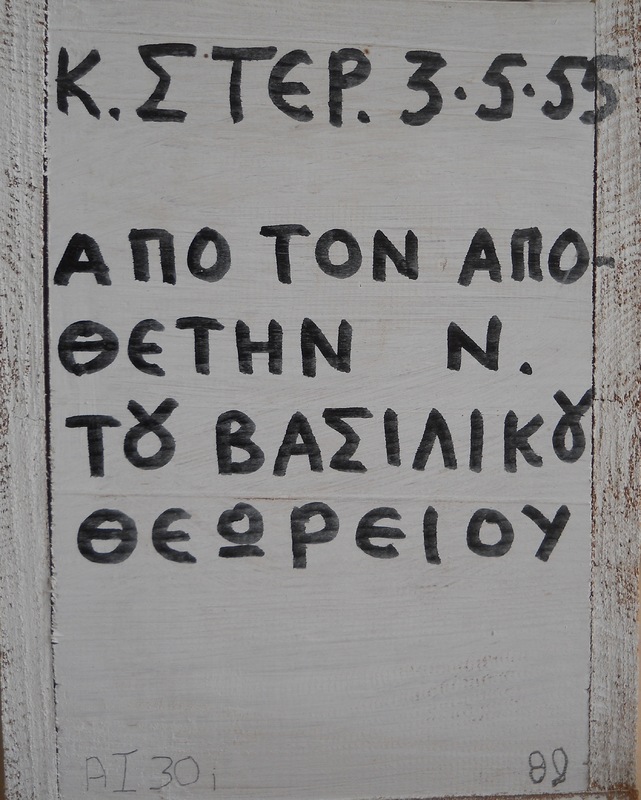 Κ. ΣΤΕΡ. 3·5·55
ΑΠΟ ΤΟΝ ΑΠΟ-
ΘΕΤΗΝ Ν.
ΤȢ ΒΑΣΙΛΙΚȢ
ΘΕΩΡΕΙΟΥ
AI 30i